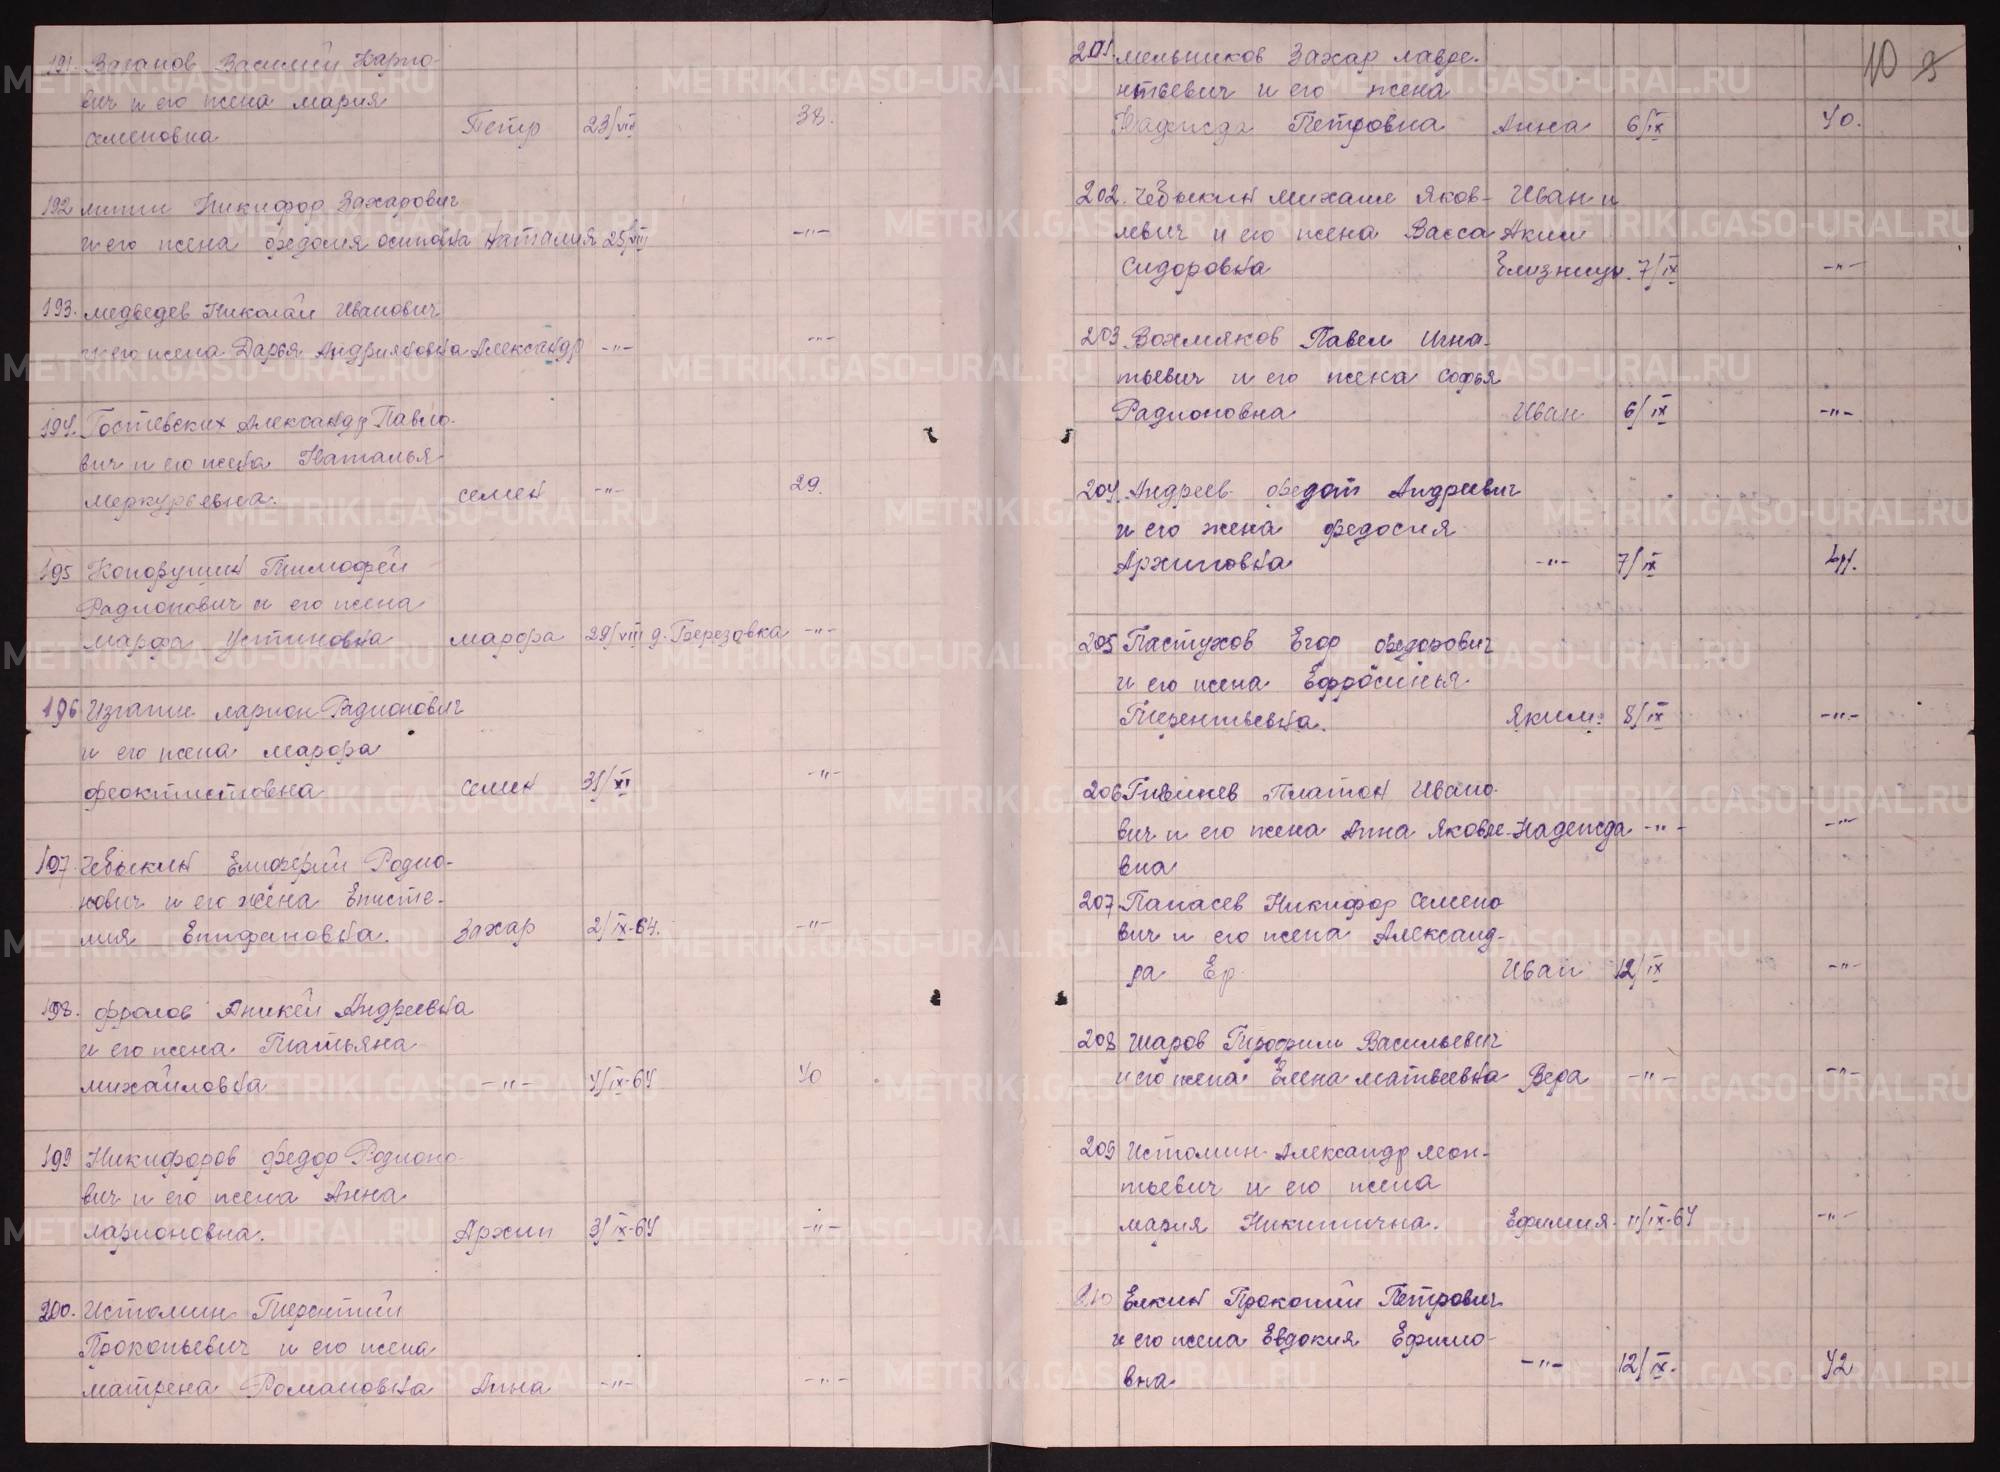 191. Ваганов Василий Карпо-
вич и его жена Мария
Семеновна Петр 23/VIII 38.
192 Никифор Захарович
и его жена Федосия Осиповна Наталия 25/VIII -"-
193. Медведев Николай Иванович
и его жена Дарья Андрияновна Александр -"- -"-
194. Гостевских Александр Павло-
вич и его жена Наталья
Меркурьевна. Семен -"- 29.
195 Копорушин Тимофей
Радионович и его жена
Марфа Устиновна Марфа 29/VIII д. Березовка -"-
196 Ларион Радионович
и его жена Марфа
Феоктистовна Семен 31/XI -"-
197 Чебыкин Елиферий Родио-
нович и его жена Еписте-
мия Епифановна. Захар 2/IX-64. -"-
198. Фролов Аникей Андреевна
и его жена Татьяна
Михайловна -"- 4/IX-64 40
199 Никифоров Федор Родионо-
вич и его жена Анна
Ларионовна. Архип 3/IX-64 -"-
200. Истомин Терентий
Прокопьевич и его жена
Матрена Романовна Анна -"- -"-
10 9
201. Мельников Захар Лавре-
нтьевич и его жена
Надежда Петровна Анна 6/IX 40.
202. Чебыкин Михаил Яков- Иван и
левич и его жена Васса Аким
Сидоровна близнецы. 7/IX -"-
203 Вохмяков Павел Игна-
тьевич и его жена Софья
Радионовна Иван 6/IX -"-
204. Андреев Федот Андреевич
и его жена Федосия
Архиповна -"- 7/IX 41.
205 Пастухов Егор Федорович
и его жена Ефросинья
Терентьевна. Яким. 8/IX -"-
206 Платон Ивано-
вич и его жена Анна Яковле- Надежда -"- -"-
вна
207 Панасев Никифор Семено
вич и его жена Александ-
ра Ер. Иван 12/IX -"-
208 Шаров Трофим Васильевич
и его жена Елена Матвеевна Вера -"- -"-
209 Истомин Александр Леон-
тьевич и его жена
Мария Никитична. Ефимия 11/IX-64 -"-
210 Елкин Прокопий Петрович
и его жена Евдокия Ефимо-
вна -"- 12/IX. 42
METRIKI.GASO-URAL.RU